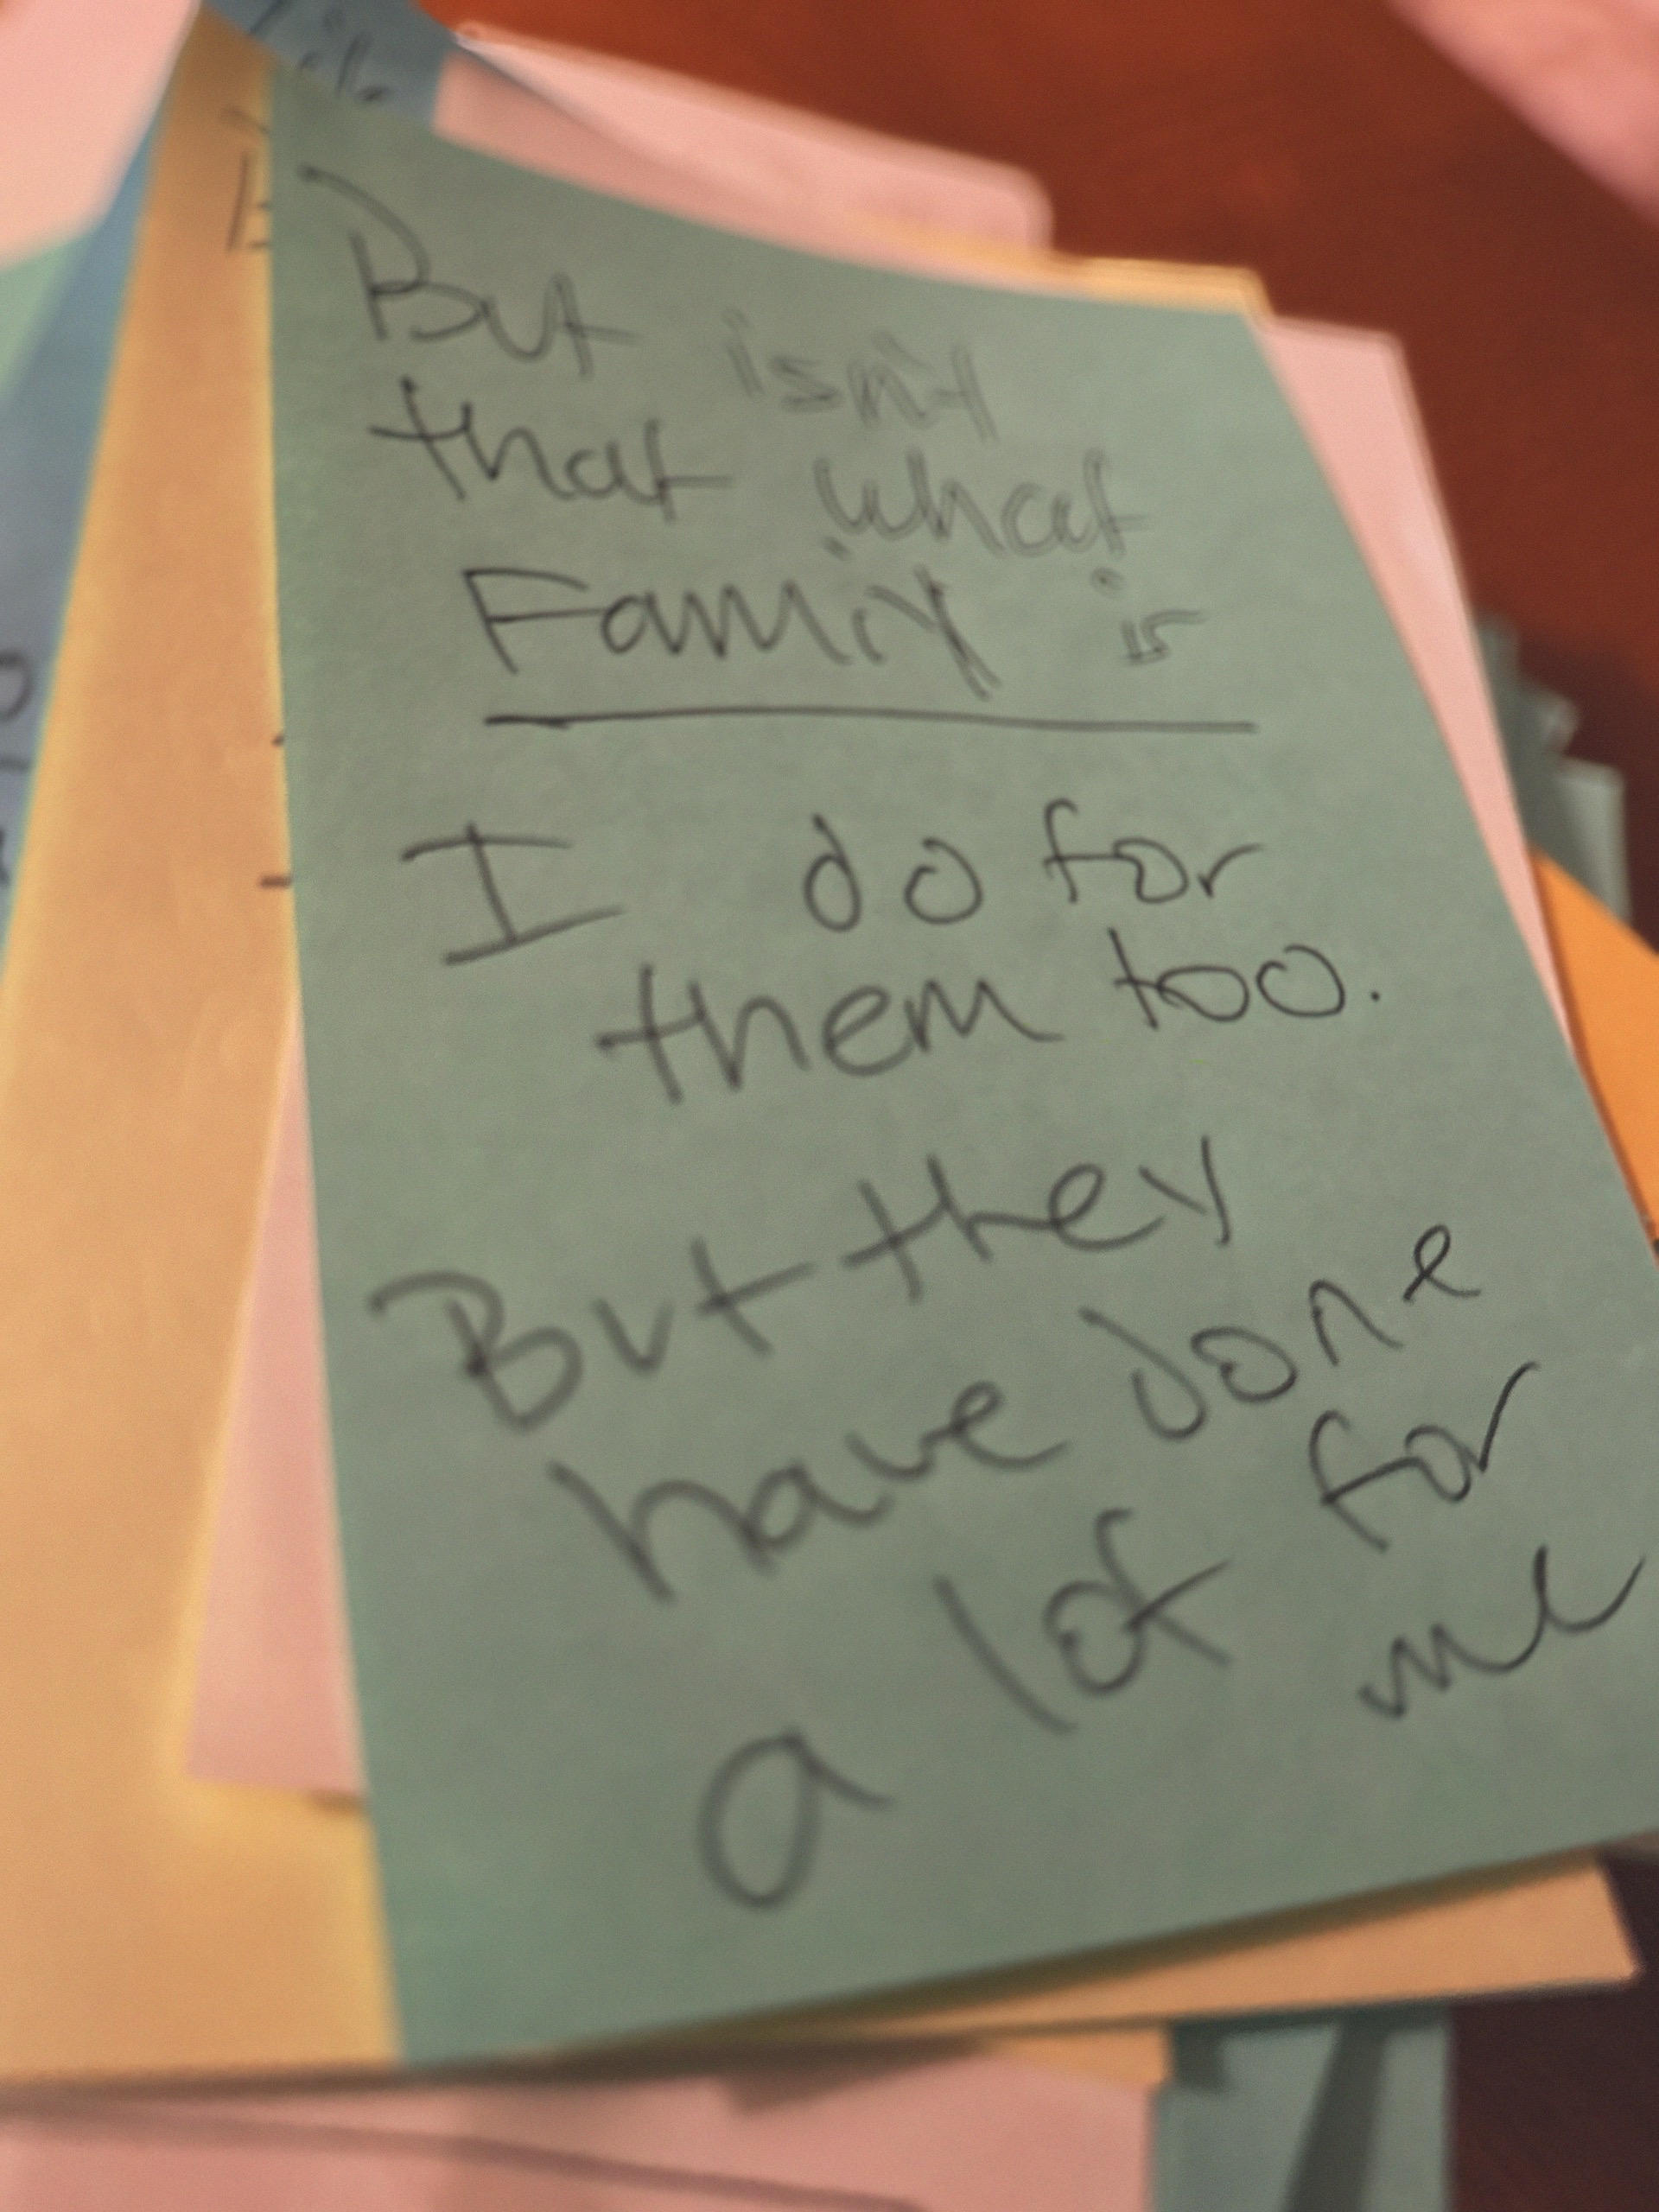 But isn't
that what
Family is
I do for
them too.
But they
have done
a lot for
me